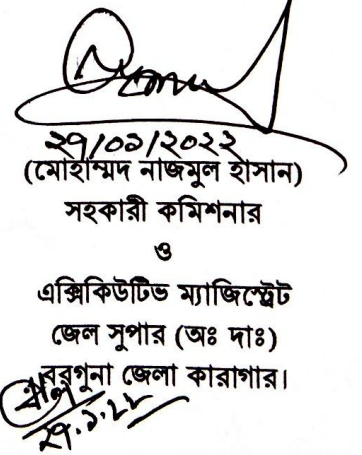 ২৭/০১/২০২২
(মোহাম্মদ নাজমুল হাসান)
সহকারী কমিশনার
ও
এক্সিকিউটিভ ম্যাজিস্ট্রেট
জেল সুপার (অঃ দাঃ)
বরগুনা জেলা কারাগার।
২৭.১.২২